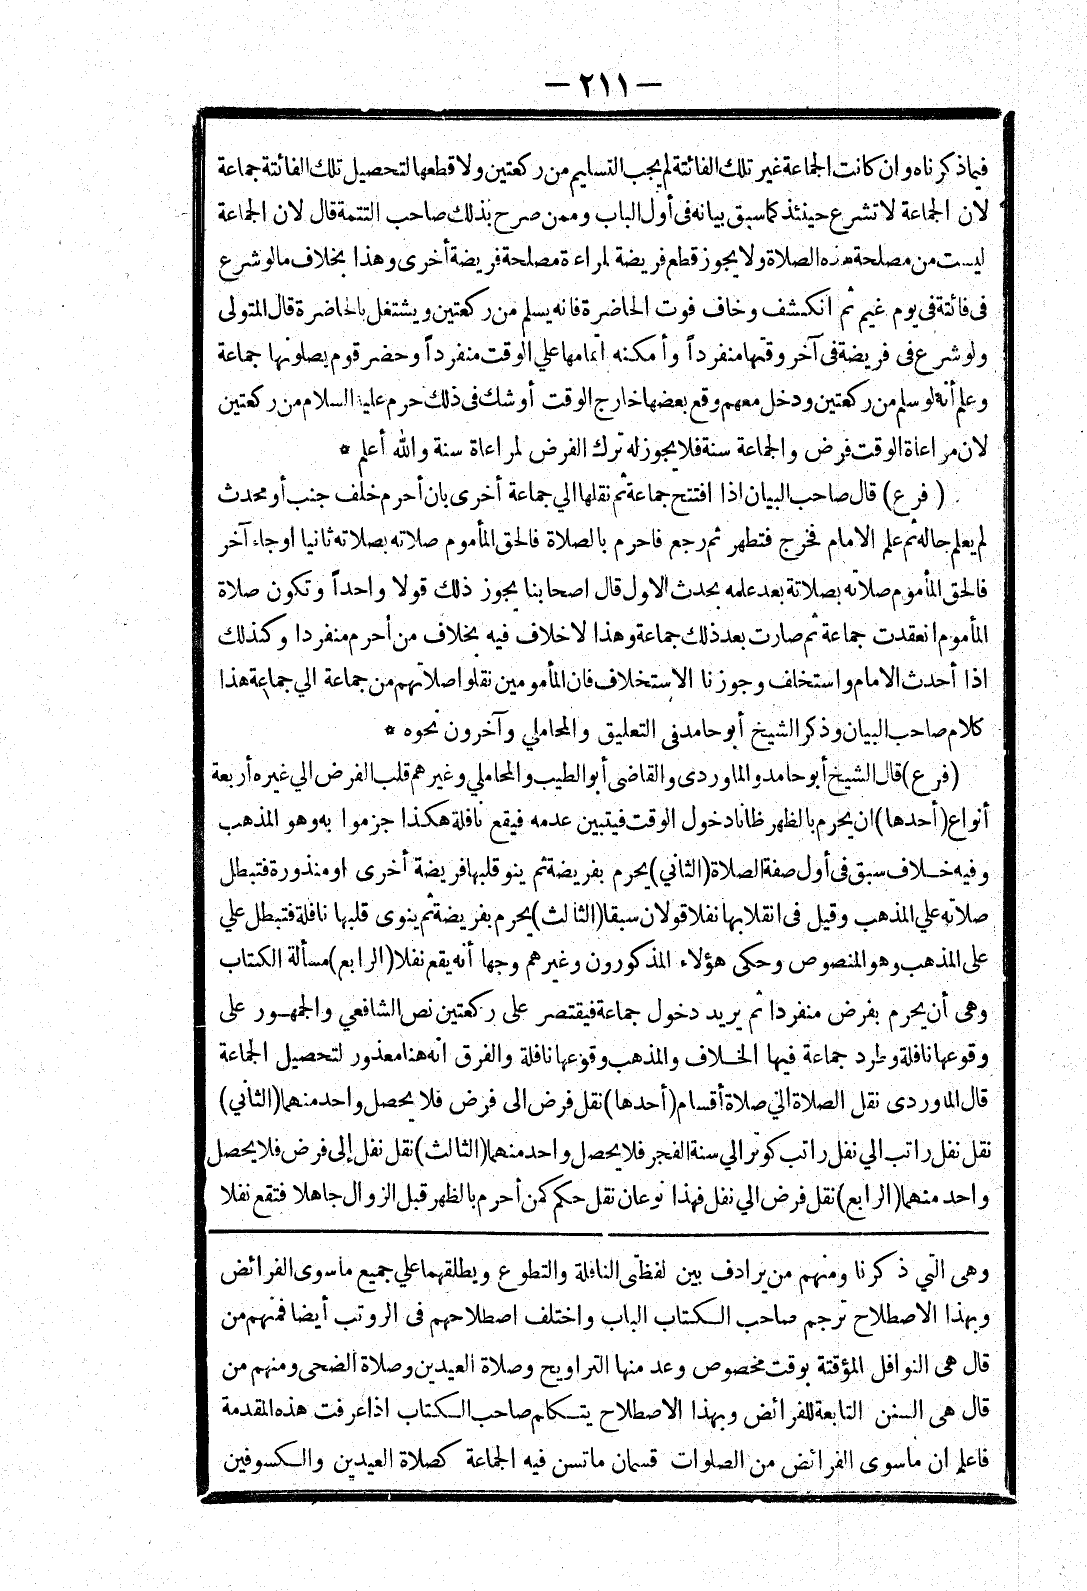 — ٢١١ —
فيما ذكرناه وان كانت الجماعة غير تلك الفائتة لم يجب التسليم من ركعتين ولا قطعها لتحصيل تلك الفائتة جماعة
لان الجماعة لا تشرع حينئذ كما سبق بيانه فى أول الباب وممن صرح بذلك صاحب التتمة قال لان الجماعة
ليست من مصلحة هذه الصلاة ولا يجوز قطع فريضة لمراعاة مصلحة فريضة أخرى وهذا بخلاف ما لو شرع
فى فائتة فى يوم غيم ثم انكشف وخاف فوت الحاضرة فانه يسلم من ركعتين ويشتغل بالحاضرة قال المتولى
ولو شرع فى فريضة فى آخر وقتها منفرداً وأمكنه اتمامها علي الوقت منفرداً وحضر قوم يصلونها جماعة
وعلم أنه لو سلم من ركعتين ودخل معهم وقع بعضها خارج الوقت أو شك فى ذلك حرم عليه السلام من ركعتين
لان مراعاة الوقت فرض والجماعة سنة فلا يجوز له ترك الفرض لمراعاة سنة والله أعلم *
( فرع ) قال صاحب البيان اذا افتتح جماعة ثم نقلها الي جماعة أخرى بان أحرم خلف جنب أو محدث
لم يعلم حاله ثم علم الامام فخرج فتطهر ثم رجع فاحرم بالصلاة فالحق المأموم صلاته بصلاته ثانيا اوجاء آخر
فالحق المأموم صلاته بصلاتة بعد علمه بحدث الاول قال اصحابنا يجوز ذلك قولا واحداً وتكون صلاة
المأموم انعقدت جماعة ثم صارت بعد ذلك جماعة وهذا لا خلاف فيه بخلاف من أحرم منفردا وكذلك
اذا أحدث الامام واستخلف وجوزنا الاستخلاف فان المأمومين نقلوا صلاتهم من جماعة الي جماعة هذا
كلام صاحب البيان وذكر الشيخ أبو حامد فى التعليق والمحاملي وآخرون نحوه *
( فرع ) قال الشيخ أبو حامد والماوردى والقاضى أبو الطيب والمحاملي وغيرهم قلب الفرض الي غيره أربعة
أنواع ( أحدها ) ان يحرم بالظهر ظانا دخول الوقت فيتبين عدمه فيقع نافلة هكذا جزموا به وهو المذهب
وفيه خلاف سبق فى أول صفة الصلاة ( الثاني ) يحرم بفريضة ثم ينو قلبها فريضة أخرى او منذورة فتبطل
صلاته علي المذهب وقيل فى انقلابها نفلا قولان سبقا ( الثالث ) يحرم بفريضة ثم ينوى قلبها نافلة فتبطل علي
على المذهب وهو المنصوص وحكى هؤلاء المذكورون وغيرهم وجها أنه يقع نفلا ( الرابع ) مسألة الكتاب
وهى أن يحرم بفرض منفردا ثم يريد دخول جماعة فيقتصر على ركعتين نص الشافعي والجمهور على
وقوعها نافلة وطرد جماعة فيها الخلاف والمذهب وقوعها نافلة والفرق انه هنا معذور لتحصيل الجماعة
قال الماوردى نقل الصلاة الي صلاة أقسام ( أحدها ) نقل فرض الى فرض فلا يحصل واحد منهما ( الثاني )
نقل نفل راتب الي نفل راتب كوتر الي سنة الفجر فلا يحصل واحد منهما ( الثالث ) نقل نفل إلى فرض فلا يحصل
واحد منهما ( الرابع ) نقل فرض الي نفل فهذا نوعان نقل حكم كمن أحرم بالظهر قبل الزوال جاهلا فتقع نفلا
وهى التي ذكرنا ومنهم من يرادف بين لفظتى النافلة والتطوع ويطلقهما علي جميع ما سوى الفرائض
وبهذا الاصطلاح ترجم صاحب الكتاب الباب واختلف اصطلاحهم فى الروتب أيضا فمنهم من
قال هى النوافل المؤقتة بوقت مخصوص وعد منها التراويح وصلاة العيدين وصلاة الضحى ومنهم من
قال هى السنن التابعة للفرائض وبهذا الاصطلاح يتكلم صاحب الكتاب اذا عرفت هذه المقدمة
فاعلم ان ما سوى الفرائض من الصلوات قسمان ما تسن فيه الجماعة كصلاة العيدين والكسوفين